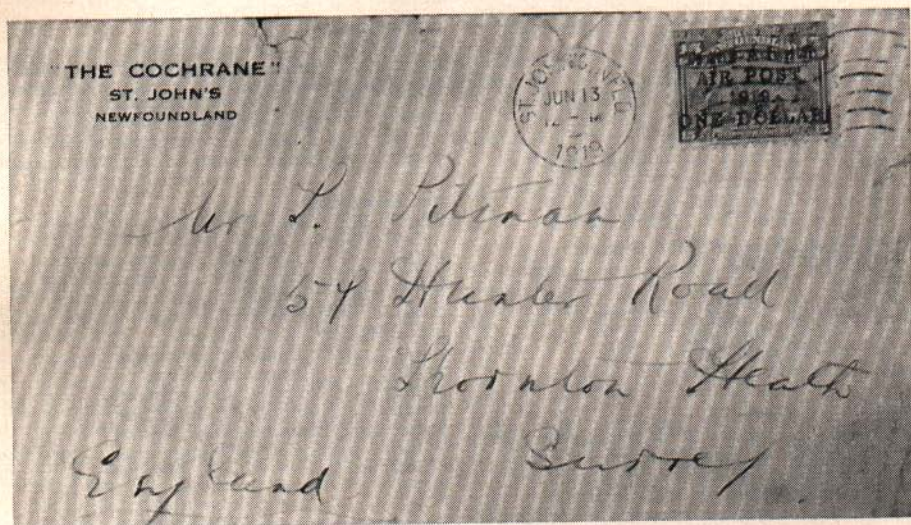 "THE COCHRANE"
ST. JOHN'S
NEWFOUNDLAND
ST. JOHN'S, NFLD.
JUN 13
1919
Trans-Atlantic
AIR POST
1919
ONE DOLLAR
Mr Pitman
54 Hunter Road
Thornton Heath
Surrey
England